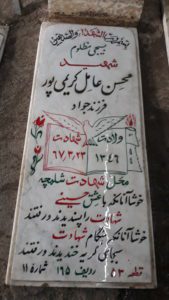 بسم رب الشهداء والصدیقین
بسیجی مظلوم
شهید
محسن عامل کریمی پور
فرزند جواد
ولادت
۱۳۴۶
شهادت
۶۷/۳/۲۳
محل شهادت شلمچه
خوشا آنانکه با عشق حسینی
شهادت را پسندیدند و رفتند
خوشا آنانکه هنگام شهادت
بسجای گریه خندیدند و رفتند
قطعه ۵۳ ردیف ۱۶۵ شماره ۱۱